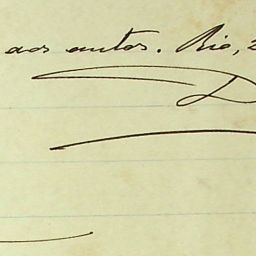 aos autos. Rio, 2
D